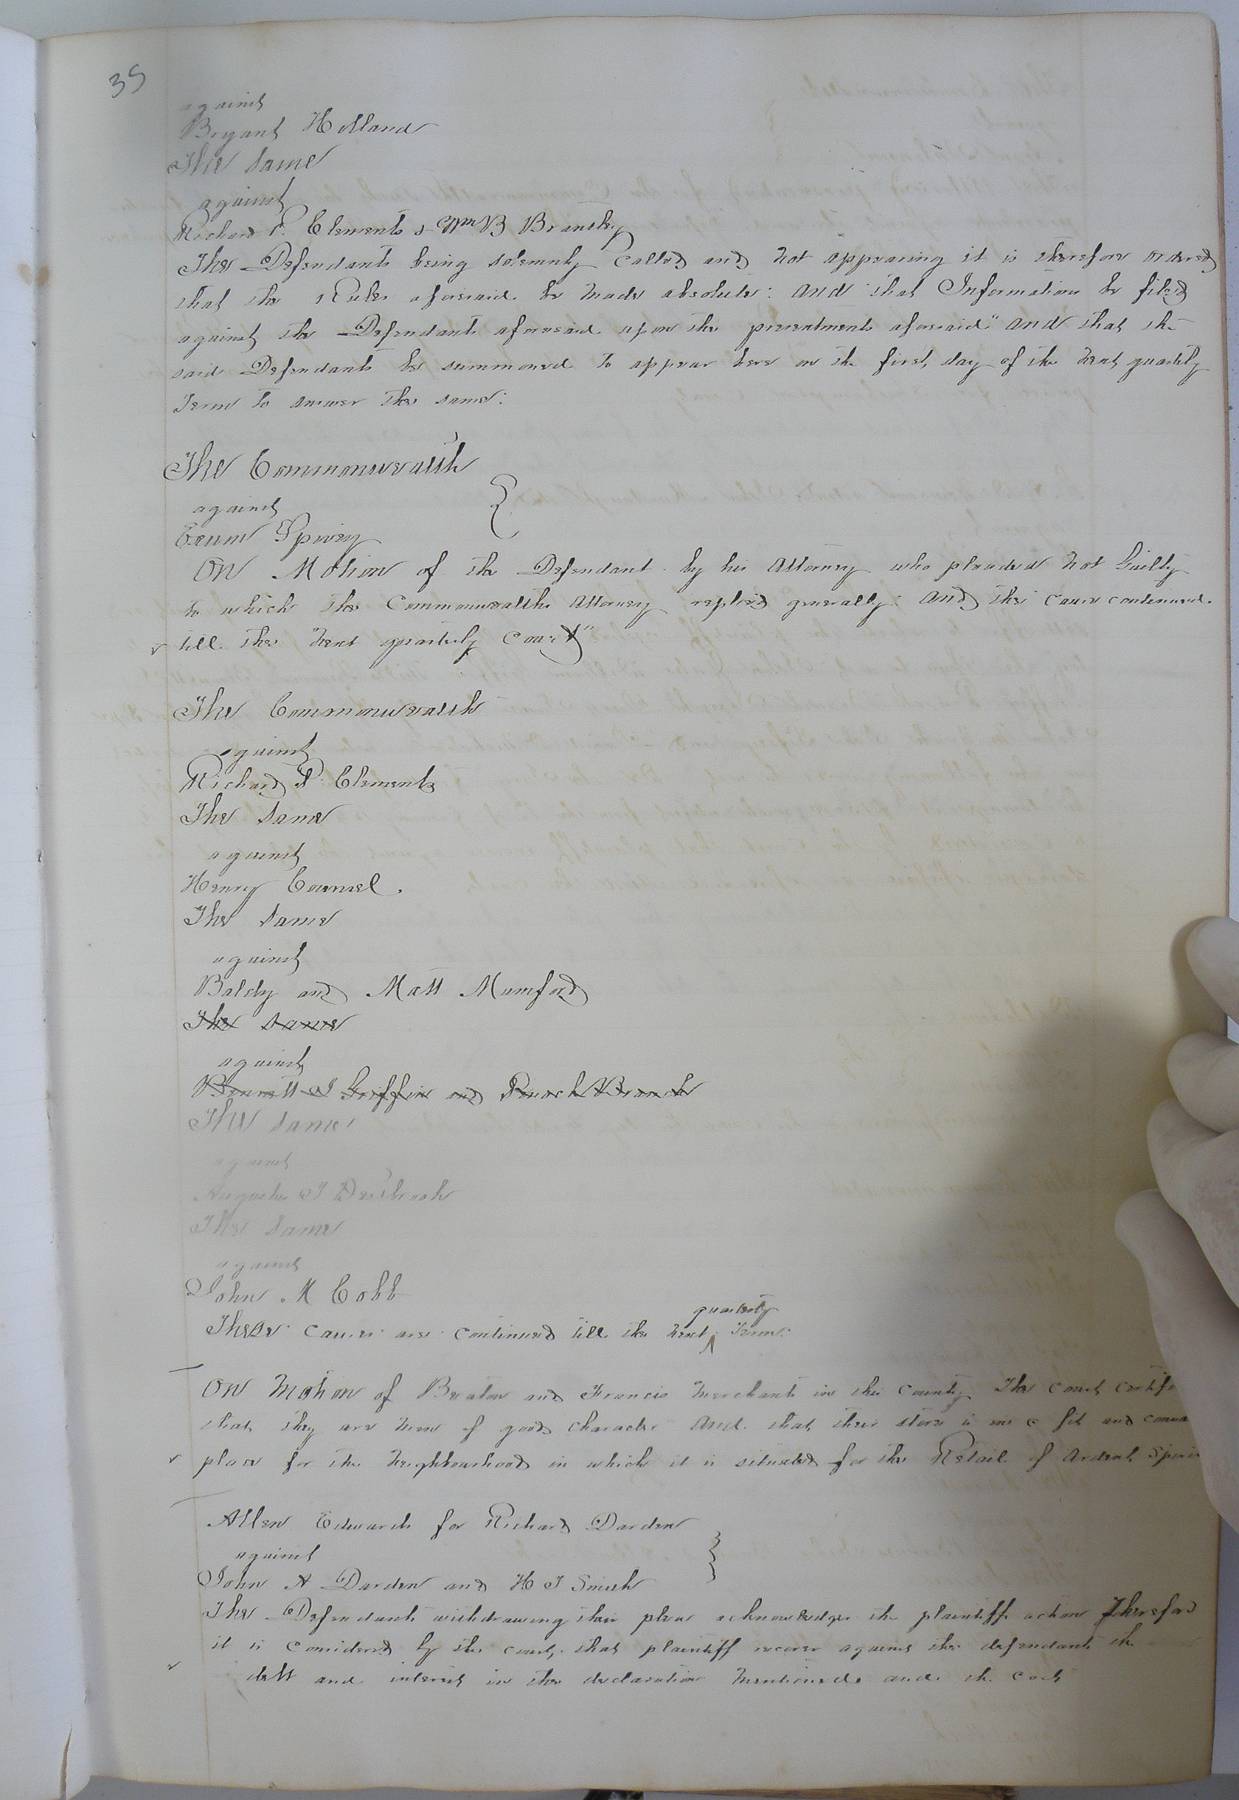 35
against
Bryant Holland
The Same
against
Richard P. Clements & Wm B Brantley
The Defendants being solemnly called and not appearing it is therefore ordered
that the Rules aforesaid be made absolute: and that Information be filed
against the Defendants aforesaid upon the presentments aforesaid" and that the
said Defendants be summoned to appear here on the first day of the next quarterly
Term to answer the same:
The Commonwealth
against
Exum Spivey
On Motion of the Defendant by his Attorney who pleaded not Guilty
to which the Commonwealths Attorney replied generally: and the cause continued
till the next quarterly Court"
The Commonwealth
against
Richard P. Clements
The Same
against
Henry Counsel.
The Same
against
Baldy and Matt Mumford
The Same
against
Bennett J Griffin and Branch
The Same
against
J
The Same
against
John M Cobb
These causes are continued till the next quarterly Term:
On Motion of Beaton and Francis Merchants in this County The Court
that they are men of good Character and that their store is fit and
place for the Neighbourhood in which it is situated for the Retail of Ardent
Allen Edwards for Richard Darden
against
John A Darden and H J Smith
The Defendants withdrawing their plea acknowledges the plaintiffs action Therefore
it is considered by the court that plaintiff recover against the defendants the
debt and interest in the declaration mentioned and the Costs